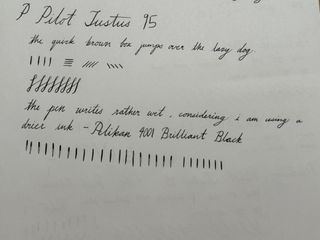 P Pilot Justus 95
the quick brown box jumps over the lazy dog.
the pen writes rather wet, considering i am using a
drier ink - Pelikan 4001 Brilliant Black